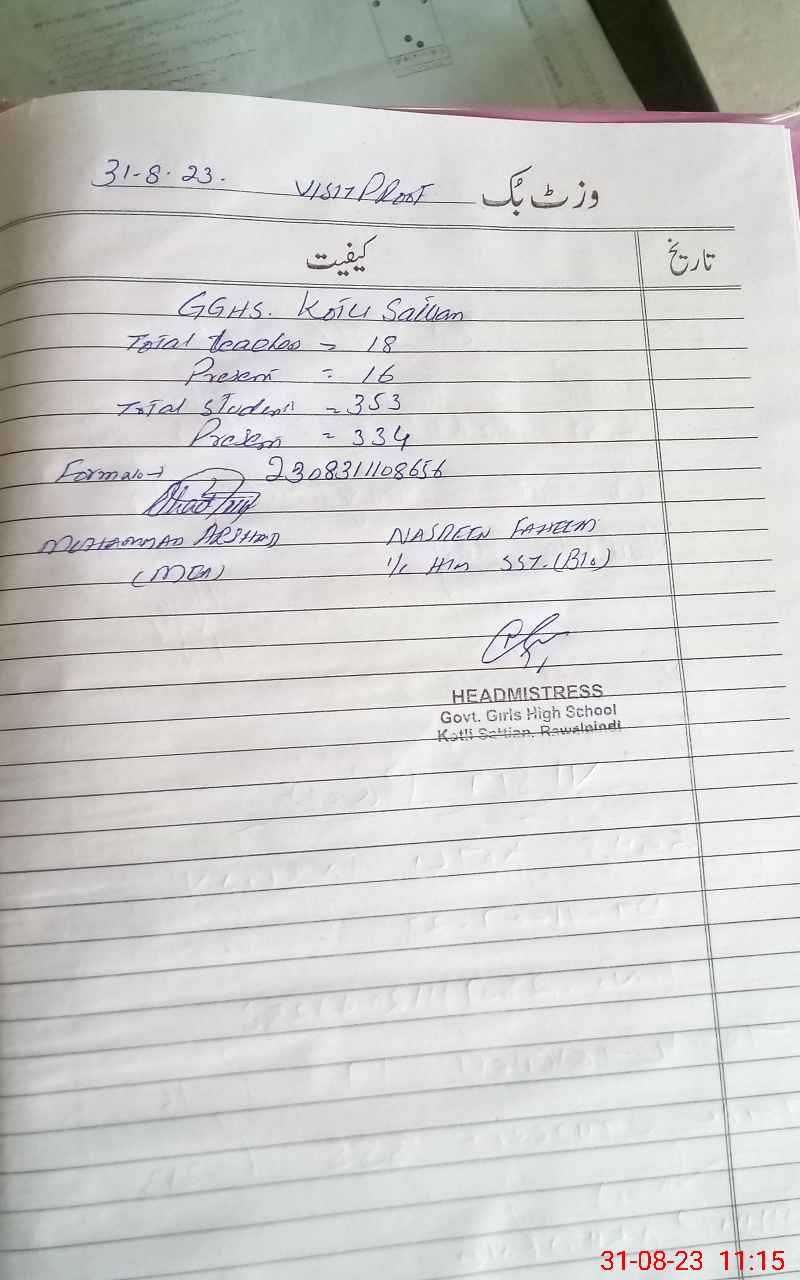 31-8-23. VISIT PROOF وزٹ بُک
کیفیت تاریخ
GGHS. Kotli Sattian
Total teaches = 18
Present = 16
Total Students = 353
Present = 334
Format → 2308311108656
MUHAMMAD ARSHAD NASREEN FAHEEM
(MEA) I/C H/m SST. (BIO)
HEADMISTRESS
Govt. Girls High School
Kotli Sattian, Rawalpindi
31-08-23 11:15